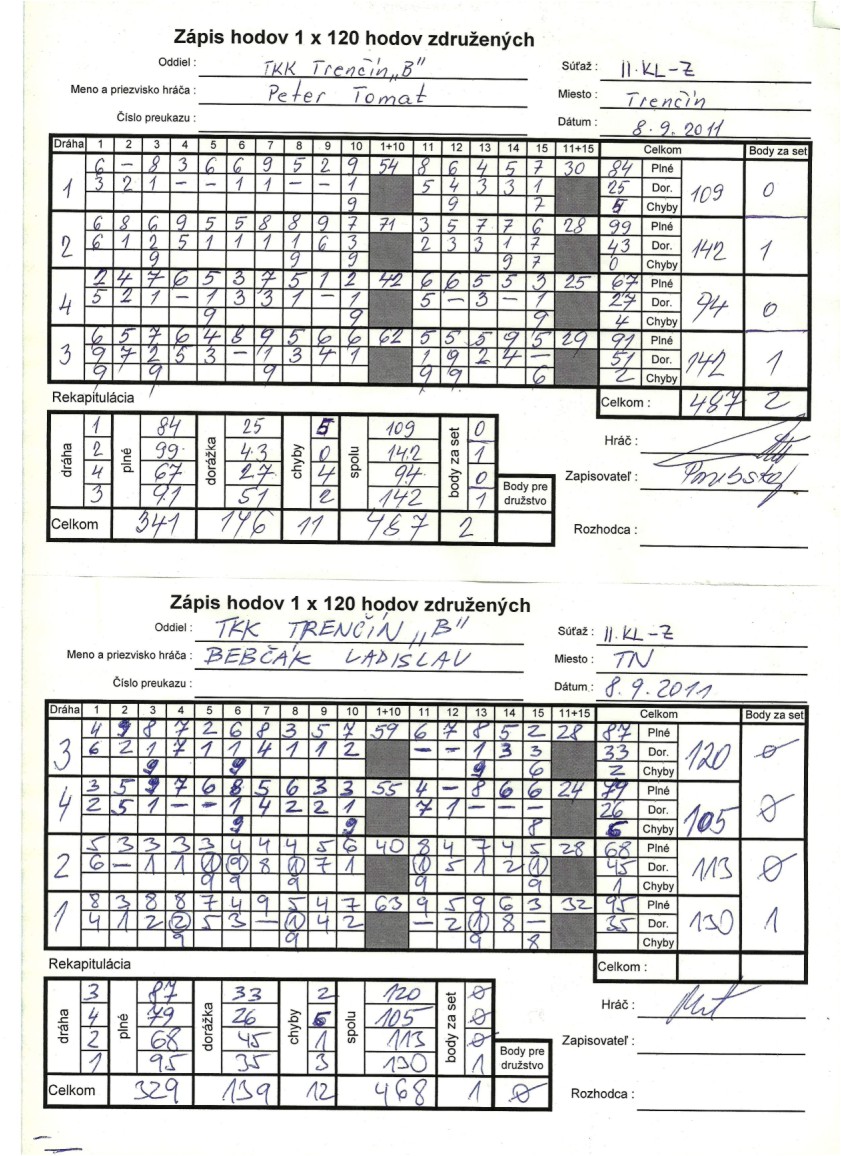 Zápis hodov 1 x 120 hodov združených
Oddiel : TKK Trenčín „B"
Súťaž : II.KL-Z
Meno a priezvisko hráča : Peter Tomat
Miesto : Trenčín
Číslo preukazu :
Dátum : 8.9.2011
Dráha 1 2 3 4 5 6 7 8 9 10 1+10 11 12 13 14 15 11+15 Celkom Body za set
1 6 - 8 3 6 6 9 5 2 9 54 8 6 4 5 7 30 84 Plné 109 0
3 2 1 - - 1 1 - - 1 5 4 3 3 1 25 Dor.
9 9 7 5 Chyby
2 6 8 6 9 5 5 8 8 9 7 71 3 5 7 7 6 28 99 Plné 142 1
6 1 2 5 1 1 1 1 6 3 2 3 3 1 7 43 Dor.
9 9 9 9 7 0 Chyby
4 2 4 7 6 5 3 7 5 1 2 42 6 6 5 5 3 25 67 Plné 94 0
5 2 1 - 1 3 3 1 - 1 5 - 3 - 1 27 Dor.
9 9 9 4 Chyby
3 6 5 7 6 4 8 9 5 6 6 62 5 5 5 9 5 29 91 Plné 142 1
9 7 2 5 3 - 1 3 4 1 1 9 2 4 - 51 Dor.
9 9 9 9 9 6 2 Chyby
Rekapitulácia
Celkom : 487 2
dráha 1 plné 84 dorážka 25 chyby 5 spolu 109 body za set 0
2 99 43 0 142 1
4 67 27 4 94 0
3 91 51 2 142 1
Body pre družstvo
Celkom 341 146 11 487 2
Hráč :
Zapisovateľ :
Rozhodca :
Zápis hodov 1 x 120 hodov združených
Oddiel : TKK TRENČÍN „B"
Súťaž : II.KL-Z
Meno a priezvisko hráča : BEBČÁK LADISLAV
Miesto : TN
Číslo preukazu :
Dátum : 8.9.2011
Dráha 1 2 3 4 5 6 7 8 9 10 1+10 11 12 13 14 15 11+15 Celkom Body za set
3 4 9 8 7 2 6 8 3 5 7 59 6 7 8 5 2 28 87 Plné 120 0
6 2 1 7 1 1 4 1 1 2 - - 1 3 3 33 Dor.
9 9 9 6 2 Chyby
4 3 5 9 7 6 8 5 6 3 3 55 4 - 8 6 6 24 79 Plné 105 0
2 5 1 - - 1 4 2 2 1 7 1 - - - 26 Dor.
9 9 8 6 Chyby
2 5 3 3 3 3 4 4 4 5 6 40 8 4 7 4 5 28 68 Plné 113 0
6 - 1 1 1 9 8 1 7 1 1 5 1 2 1 45 Dor.
9 9 9 9 9 1 Chyby
1 8 3 8 8 7 4 9 5 4 7 63 9 5 9 6 3 32 95 Plné 130 1
4 1 2 2 5 3 - 1 4 2 - 2 1 8 - 35 Dor.
9 9 9 8 Chyby
Rekapitulácia
Celkom :
dráha 3 plné 87 dorážka 33 chyby 2 spolu 120 body za set 0
4 79 26 6 105 0
2 68 45 1 113 0
1 95 35 3 130 1
Body pre družstvo
Celkom 329 139 12 468 1 0
Hráč :
Zapisovateľ :
Rozhodca :